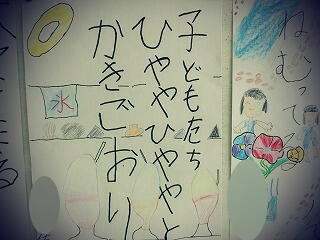 ねむって
子どもたち
ひややひややと
かきごおり
氷